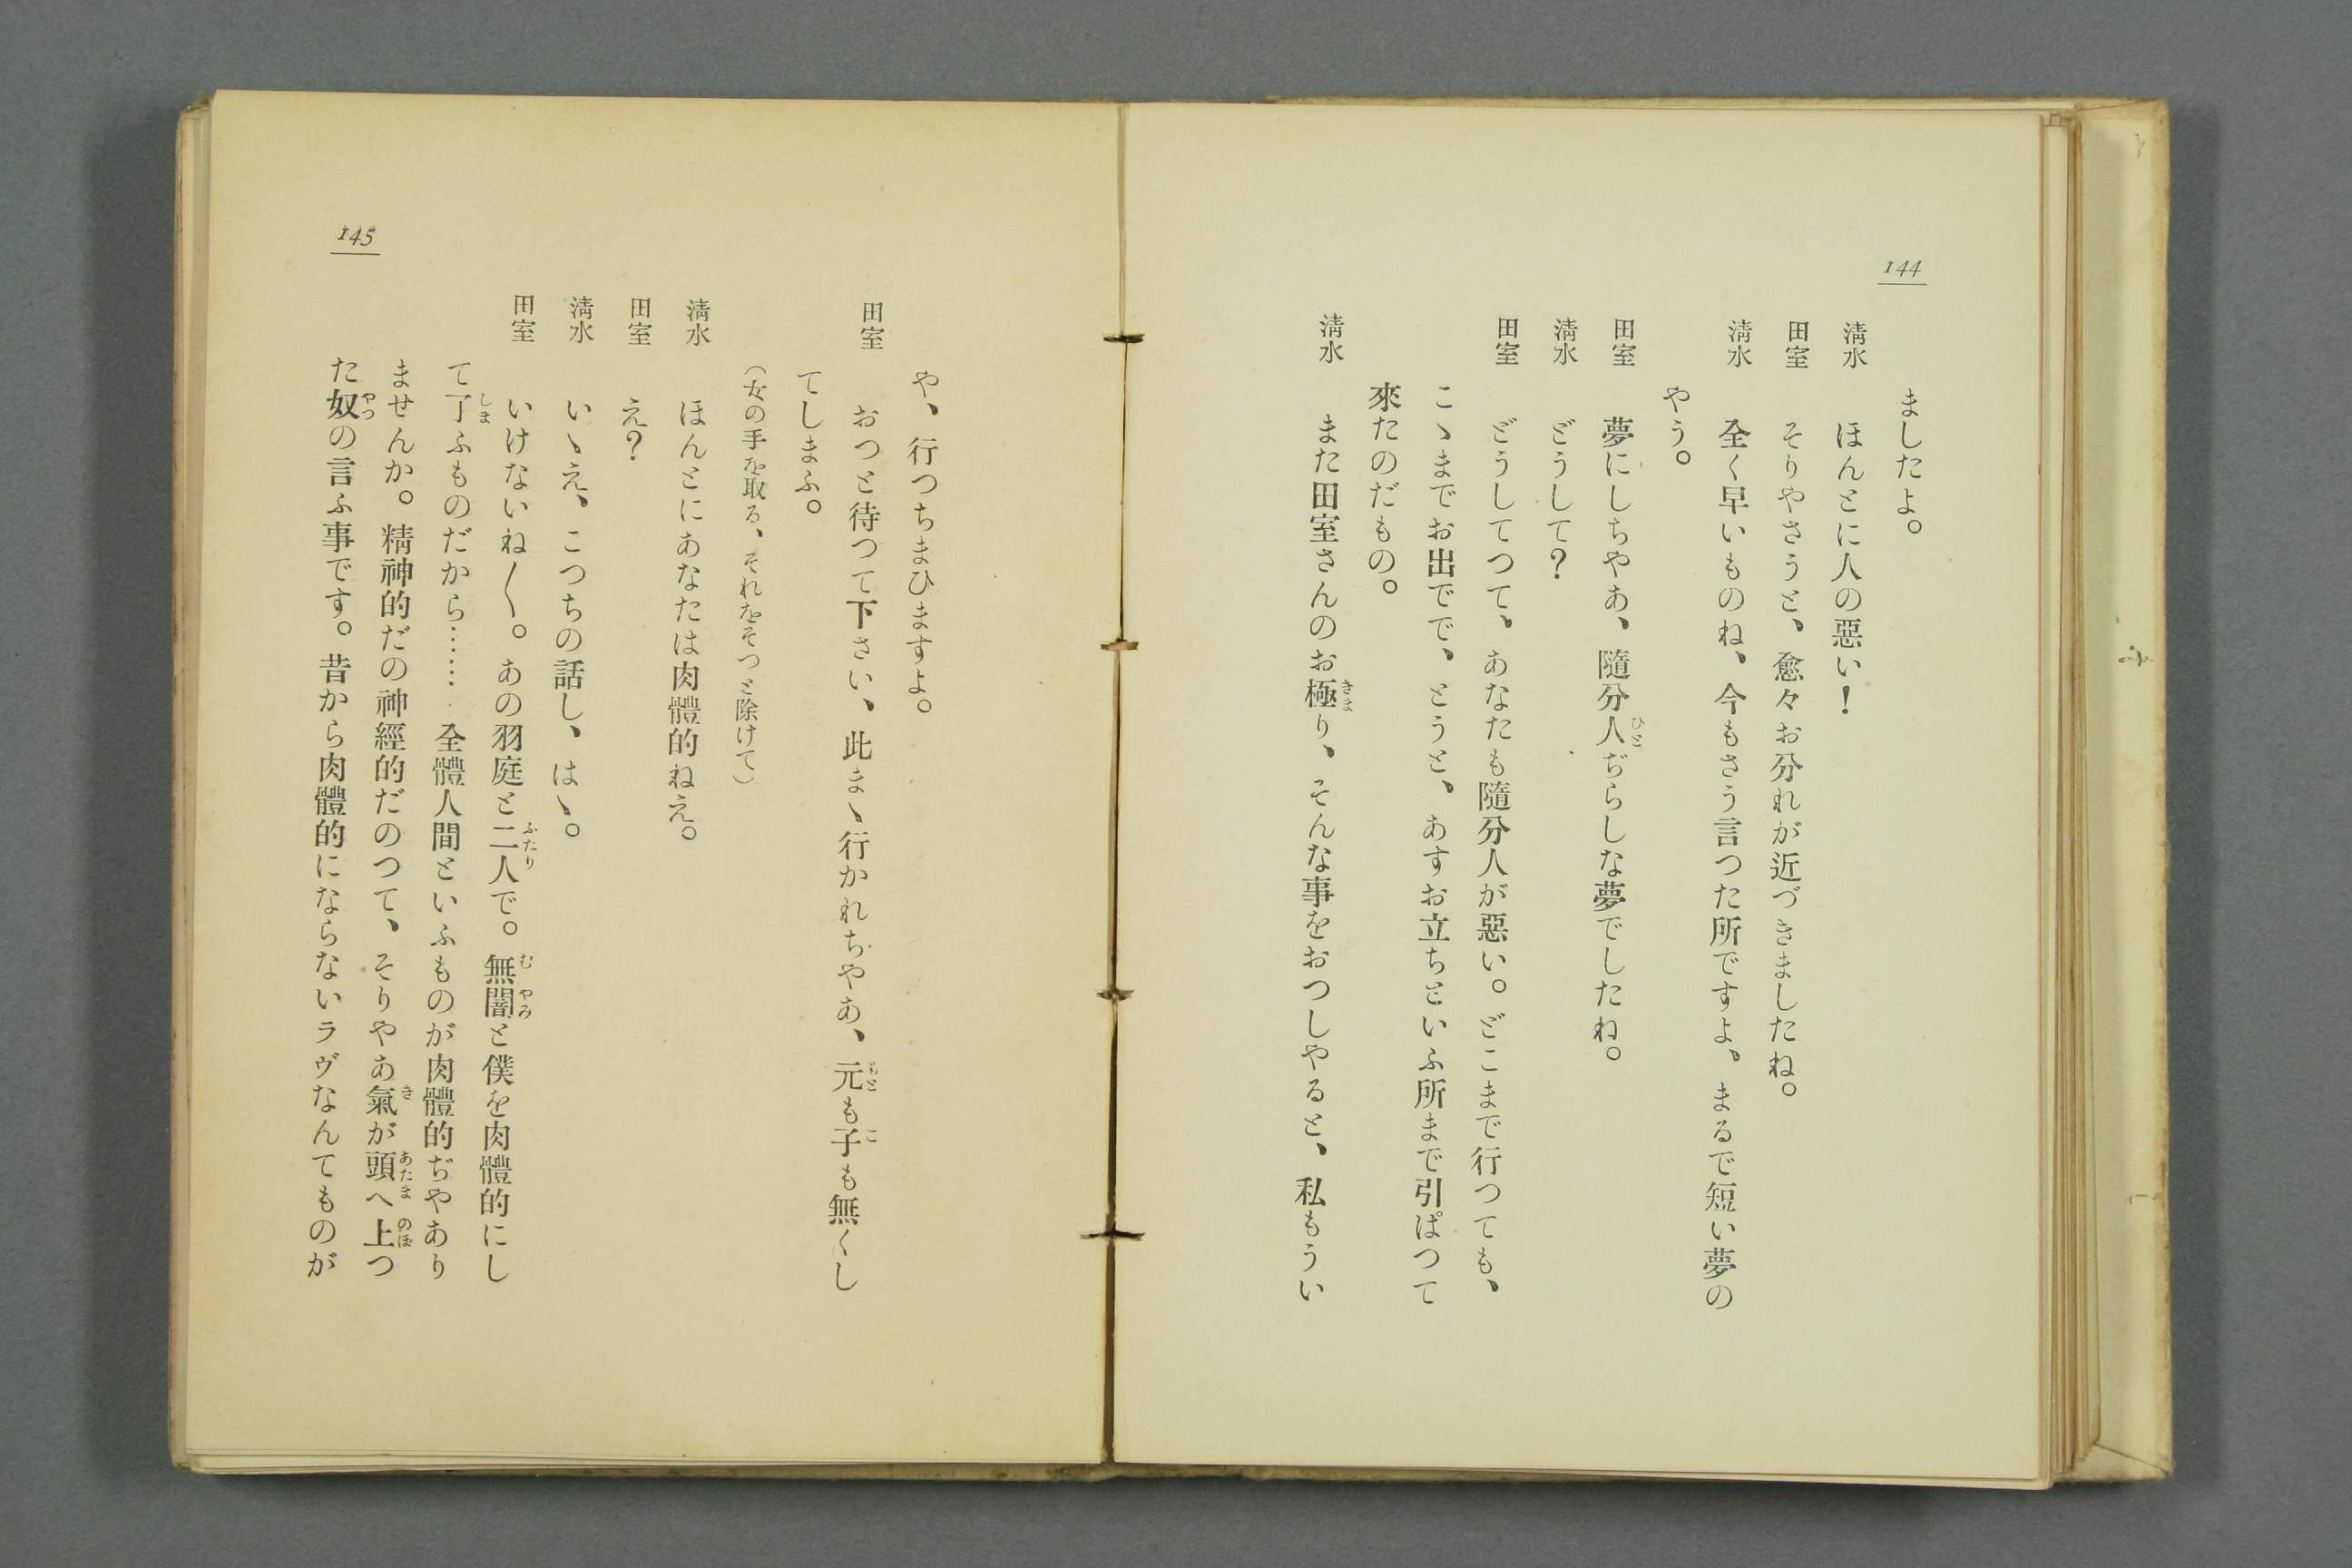 144
ましたよ。
淸水　ほんとに人の惡い！
田室　そりやさうと、愈々お分れが近づきましたね。
淸水　全く早いものね、今もさう言つた所ですよ、まるで短い夢の
やう。
田室　夢にしちやあ、隨分人ぢらしな夢でしたね。
淸水　どうして？
田室　どうしてつて、あなたも隨分人が惡い。どこまで行つても、
こゝまでお出でで、とうと、あすお立ちといふ所まで引ぱつて
來たのだもの。
淸水　また田室さんのお極り、そんな事をおつしやると、私もうい
145
や、行つちまひますよ。
田室　おつと待つて下さい、此まゝ行かれちやあ、元も子も無くし
てしまふ。
（女の手を取る、それをそつと除けて）
淸水　ほんとにあなたは肉體的ねえ。
田室　え？
淸水　いゝえ、こつちの話し、はゝ。
田室　いけないね〱。あの羽庭と二人で。無闇と僕を肉體的にし
て了ふものだから……全體人間といふものが肉體的ぢやあり
ませんか。精神的だの神經的だのつて、そりやあ氣が頭へ上つ
た奴の言ふ事です。昔から肉體的にならないラヴなんてものが